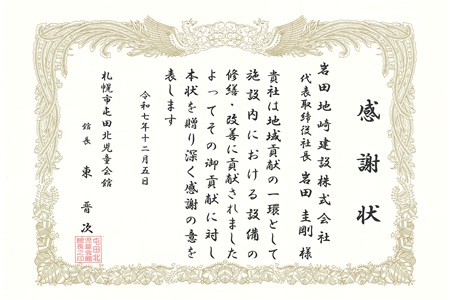 感謝状
岩田地崎建設株式会社
代表取締役社長 岩田 圭剛 様
貴社は地域貢献の一環として
施設内における設備の
修繕・改善に貢献されました
よってその御貢献に対し
本状を贈り深く感謝の意を
表します
令和七年十二月五日
札幌市屯田北児童会館
館長 東 晋次
屯田北
児童会館
館長之印